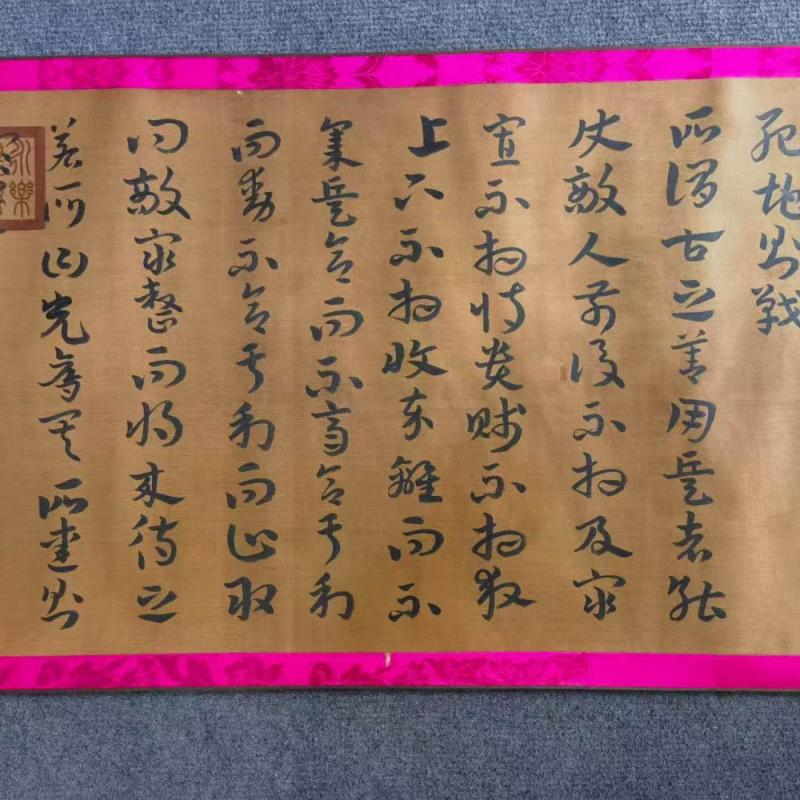 死地則戰
所謂古之善用兵者能
使敵人前後不相及眾
寡不相恃貴賤不相救
上下不相收卒離而不
集兵合而不齊合于利
而動不合于利而止敢
問敵眾整而將來待之
若何曰先奪其所愛則
永樂